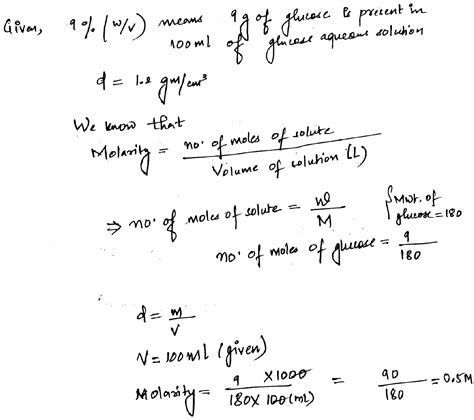 Given, 9% (w/v) means 9g of glucose is present in
100 ml of glucose aqueous solution
d = 1.2 gm/cm³
We know that
Molarity = no. of moles of solute / Volume of solution (L)
⇒ no. of moles of solute = w/M {Mwt. of glucose = 180
no. of moles of glucose = 9/180
d = m/v
V = 100 ml (given)
Molarity = 9 × 1000 / 180 × 100 (mL) = 90/180 = 0.5M